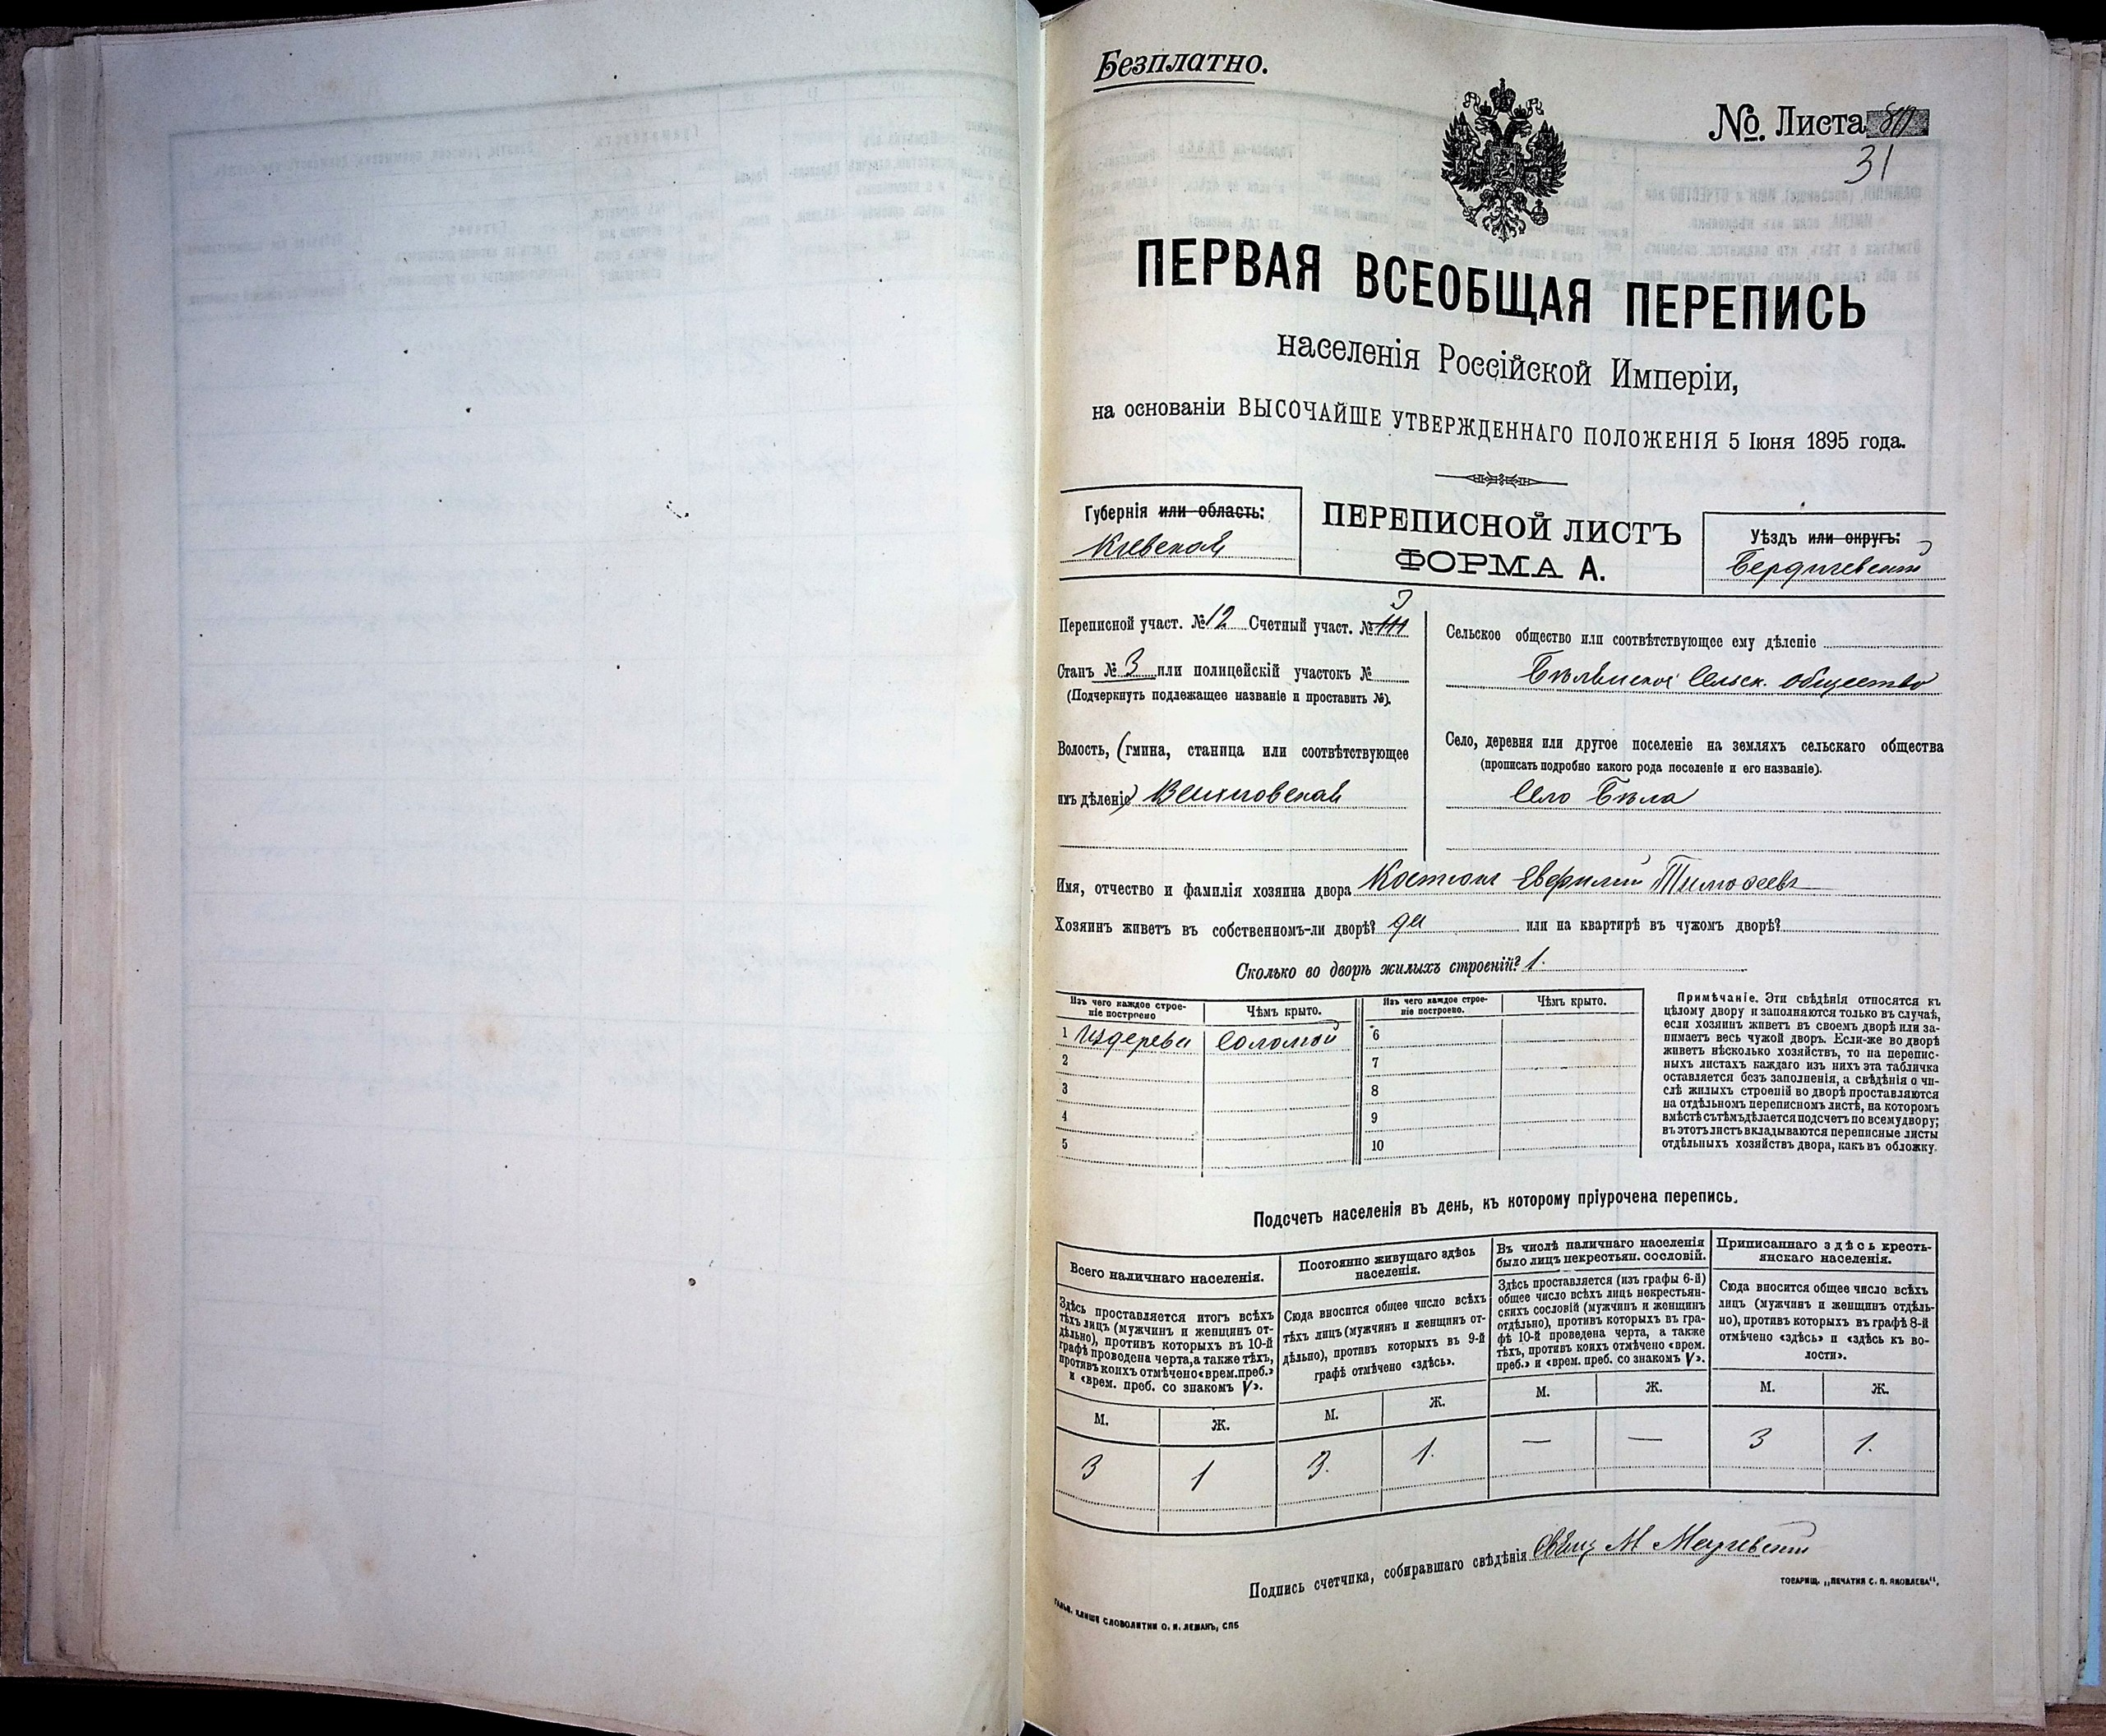 Безплатно.
№. Листа
31
ПЕРВАЯ ВСЕОБЩАЯ ПЕРЕПИСЬ
населенія Россійской Имперіи,
на основаніи ВЫСОЧАЙШЕ УТВЕРЖДЕННАГО ПОЛОЖЕНІЯ 5 Іюня 1895 года.
Губернія или область:
Кіевская
ПЕРЕПИСНОЙ ЛИСТЪ
ФОРМА А.
Уѣздъ или округъ:
Бердичевскій
Переписной участ. № 12 Счетный участ. № 3
Станъ № 3 или полицейскій участокъ №
(Подчеркнуть подлежащее названіе и проставить №).
Волость, (гмина, станица или соотвѣтствующее
имъ дѣленіе)
Сельское общество или соотвѣтствующее ему дѣленіе
Сельск. общество
Село, деревня или другое поселеніе на земляхъ сельскаго общества
(прописать подробно какого рода поселеніе и его названіе).
Село Бѣла
Имя, отчество и фамилія хозяина двора Костюкъ Тимофеевъ
Хозяинъ живетъ въ собственномъ-ли дворѣ? да или на квартирѣ въ чужомъ дворѣ?
Сколько во дворѣ жилыхъ строеній? 1.
Изъ чего каждое строе-
ніе построено
Чѣмъ крыто.
Изъ чего каждое строе-
ніе построено.
Чѣмъ крыто.
1 Издерева Соломой 6
2 7
3 8
4 9
5 10
Примѣчаніе. Эти свѣдѣнія относятся къ
цѣлому двору и заполняются только въ случаѣ,
если хозяинъ живетъ въ своемъ дворѣ или за-
нимаетъ весь чужой дворъ. Если-же во дворѣ
живетъ нѣсколько хозяйствъ, то на перепис-
ныхъ листахъ каждаго изъ нихъ эта табличка
оставляется безъ заполненія, а свѣдѣнія о чи-
слѣ жилыхъ строеній во дворѣ проставляются
на отдѣльномъ переписномъ листѣ, на которомъ
вмѣстѣ съ тѣмъ дѣлается подсчетъ по всему двору;
въ этотъ листъ вкладываются переписные листы
отдѣльныхъ хозяйствъ двора, какъ въ обложку.
Подсчетъ населенія въ день, къ которому пріурочена перепись.
Всего наличнаго населенія.
Здѣсь проставляется итогъ всѣхъ
тѣхъ лицъ (мужчинъ и женщинъ от-
дѣльно), противъ которыхъ въ 10-й
графѣ проведена черта, а также тѣхъ,
противъ коихъ отмѣчено «врем. преб.»
и «врем. преб. со знакомъ V».
Постоянно живущаго здѣсь
населенія.
Сюда вносится общее число всѣхъ
тѣхъ лицъ (мужчинъ и женщинъ от-
дѣльно), противъ которыхъ въ 9-й
графѣ отмѣчено «здѣсь».
Въ числѣ наличнаго населенія
было лицъ некрестьян. сословій.
Здѣсь проставляется (изъ графы 6-й)
общее число всѣхъ лицъ некрестьян-
скихъ сословій (мужчинъ и женщинъ
отдѣльно), противъ которыхъ въ гра-
фѣ 10-й проведена черта, а также
тѣхъ, противъ коихъ отмѣчено «врем.
преб.» и «врем. преб. со знакомъ V».
Приписаннаго здѣсь кресть-
янскаго населенія.
Сюда вносится общее число всѣхъ
лицъ (мужчинъ и женщинъ отдѣль-
но), противъ которыхъ въ графѣ 8-й
отмѣчено «здѣсь» и «здѣсь къ во-
лости».
М. Ж. М. Ж. М. Ж. М. Ж.
3 1 3. 1. — — 3 1.
Подпись счетчика, собиравшаго свѣдѣнія
ТОВАРИЩ. „ПЕЧАТНЯ С. П. ЯКОВЛЕВА“.
ГАЛЬВ. КЛИШЕ СЛОВОЛИТНИ О. И. ЛЕМАНЪ, СПБ